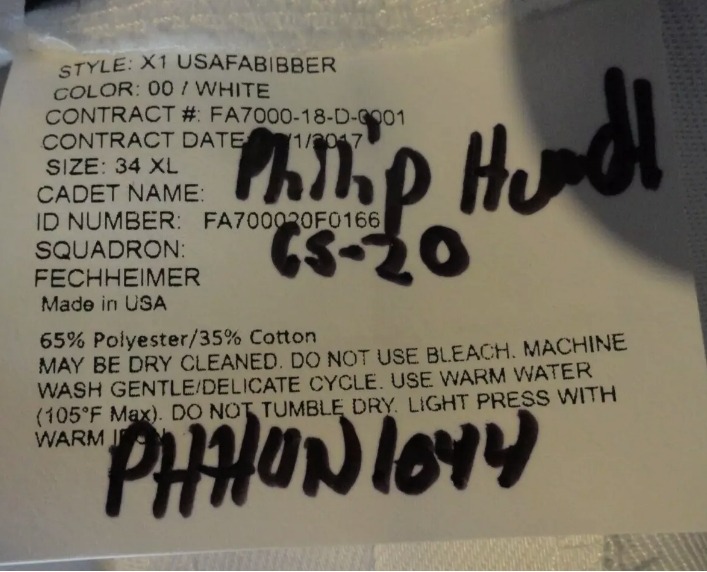 STYLE: X1 USAFABIBBER
COLOR: 00 / WHITE
CONTRACT #: FA7000-18-D-0001
CONTRACT DATE: /1/2017
SIZE: 34 XL
CADET NAME: Phillip Hundl
ID NUMBER: FA700020F0166
SQUADRON: CS-20
FECHHEIMER
Made in USA
65% Polyester/35% Cotton
MAY BE DRY CLEANED. DO NOT USE BLEACH. MACHINE
WASH GENTLE/DELICATE CYCLE. USE WARM WATER
(105°F Max). DO NOT TUMBLE DRY. LIGHT PRESS WITH
WARM IRON.
PHHUN1044